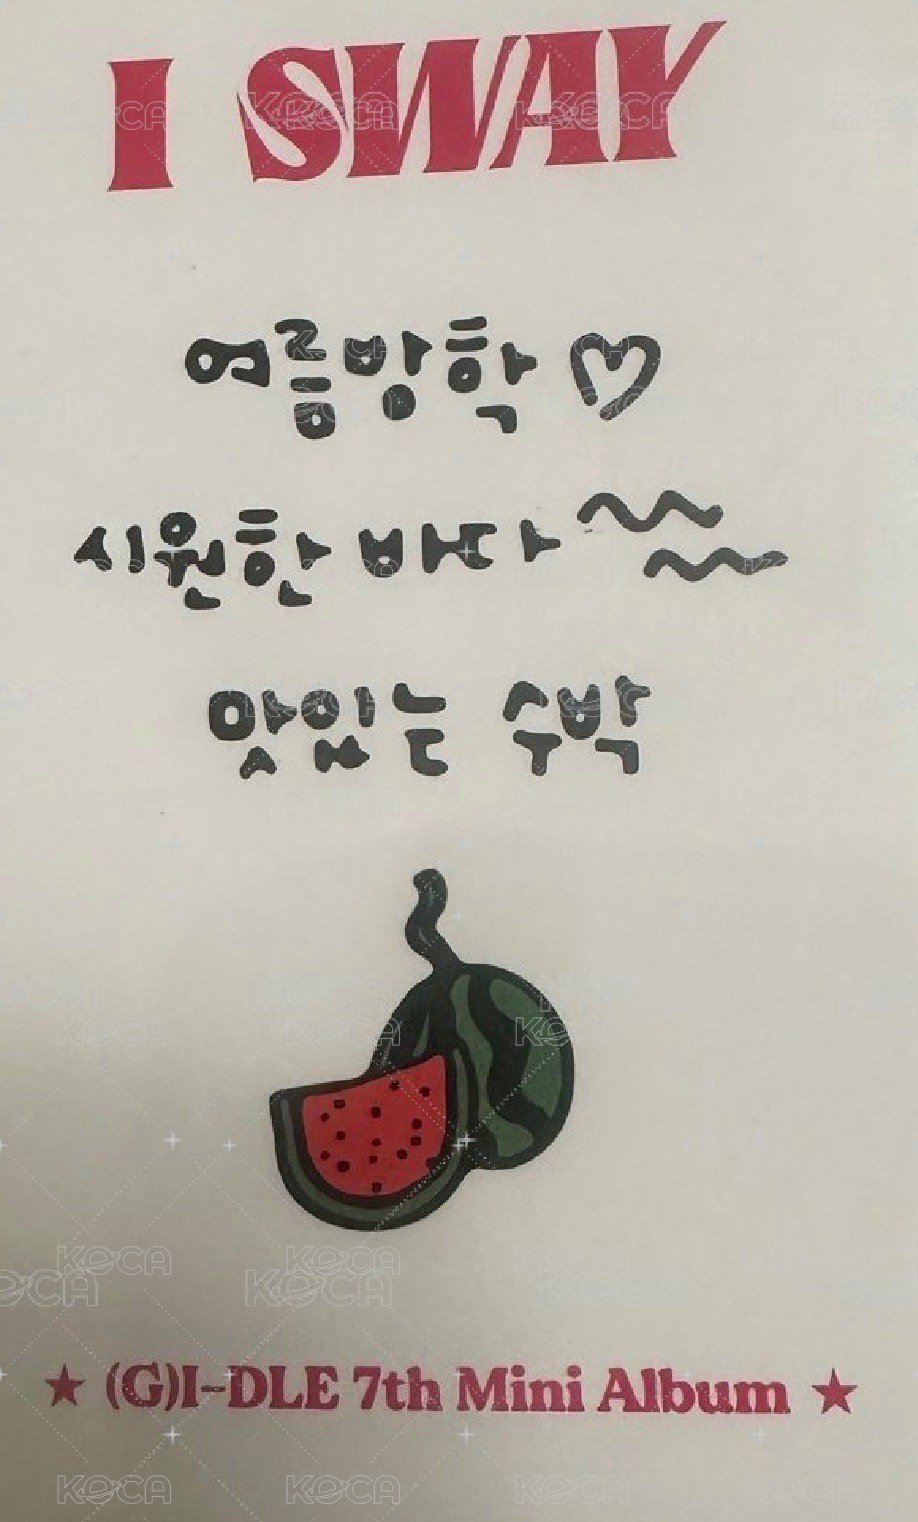 I SWAY
여름방학 ♡
시원한 바다
맛있는 수박
★ (G)I-DLE 7th Mini Album ★
KOCA
KOCA
KOCA
KOCA
KOCA
KOCA
KOCA